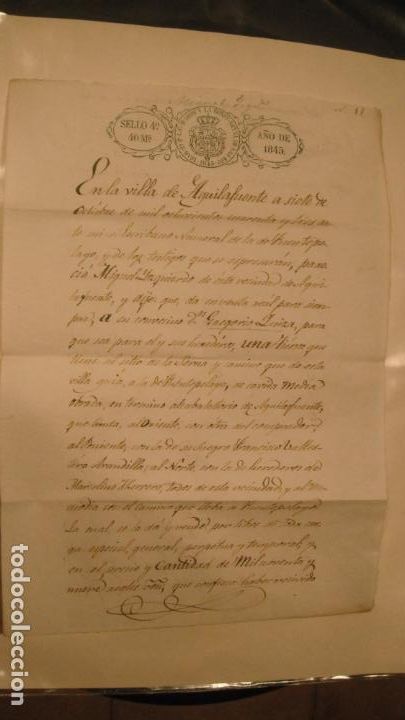 SELLO 4º
40 Ms
AÑO DE
1843.
En la villa de Aquilafuente a siete de
Octubre de mil ochocientos cuarenta y tres an
te mi el Escribano Numeral de la de Fuentepe
layo, y de los testigos que se espresarán, pare
ció Miguel Yzquierdo de esta vecindad de Aqui
lafuente, y dijo: que da en venta real para siem
pre, a su convecino Dn Gregorio, para
que sea para el y sus herederos, una tierra que
tiene al sitio de la y camino que de esta
villa guia a la de Fuentepelayo, de cavida media
obrada, en termino alcabalatorio de Aquilafuente,
que linda, al Oriente, con otra del comprador;
al Poniente, con la de su suegro Francisco
Arandilla; al Norte, con la de herederos de
Marcelino Herrero, todos de esta vecindad; y al Me
diodia con el camino que lleba a Fuentepelayo:
La cual se la da y vende por libre de toda car
ga especial, general, perpetua y temporal, y
en el precio y cantidad de Mil y
nueve reales von, que confiesa haber recivido
todocoleccion.net